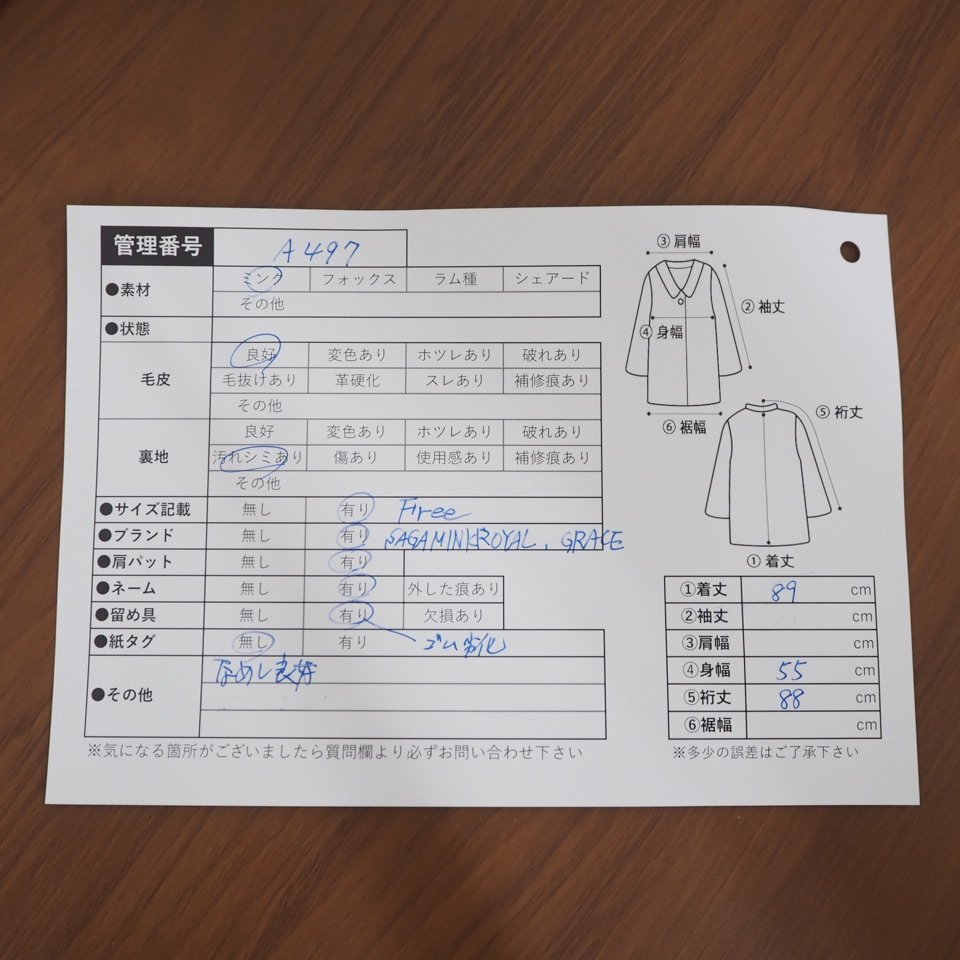 管理番号 A497
●素材 ミンク フォックス ラム種 シェアード
その他
●状態
毛皮 良好 変色あり ホツレあり 破れあり
毛抜けあり 革硬化 スレあり 補修痕あり
その他
裏地 良好 変色あり ホツレあり 破れあり
汚れシミあり 傷あり 使用感あり 補修痕あり
その他
●サイズ記載 無し 有り Free
●ブランド 無し 有り SAGAMINKROYAL、GRACE
●肩パット 無し 有り
●ネーム 無し 有り 外した痕あり
●留め具 無し 有り 欠損あり
●紙タグ 無し 有り ゴム劣化
●その他 なめし良好
※気になる箇所がございましたら質問欄より必ずお問い合わせ下さい
③肩幅
②袖丈
④身幅
⑥裾幅
⑤裄丈
①着丈
①着丈 89 cm
②袖丈 cm
③肩幅 cm
④身幅 55 cm
⑤裄丈 88 cm
⑥裾幅 cm
※多少の誤差はご了承下さい